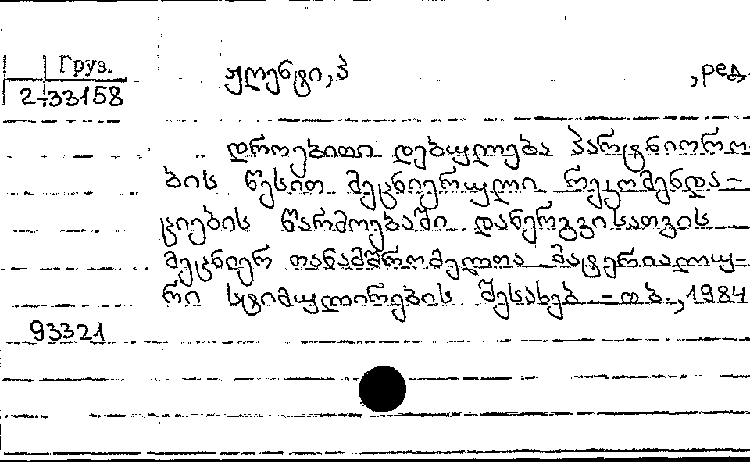 Груз.
2-33158
ჟღენტი, პ , ред
დროებითი დებულება პარტნიორო
ბის წესით მეცნიერული რეკომენდა-
ციების წარმოებაში დანერგვისათვის
მეცნიერ თანამშრომელთა მატერიალუ-
რი სტიმულირების შესახებ - თბ., 1984
93321